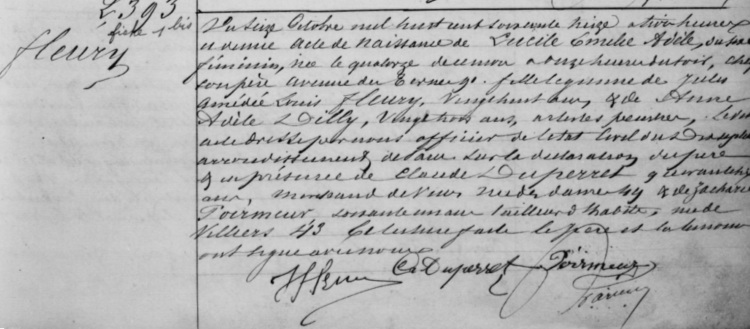 2393
fiche 1 bis
Fleury
Du Seize Octobre mil huit cent soixante treize à trois heures
et demie Acte de Naissance de Lucile Emilie Adèle, du sexe
féminin, née le quatorze de ce mois à onze heures du soir, chez
son père Avenue des Ternes 90. fille légitime de Jules
Amédée Louis Fleury, Vingt huit ans, & de Anne
Adèle Dilly, Vingt trois ans, artistes peintres,
acte dressé par nous officier de l'état civil du Dix septième
arrondissement de Paris sur la déclaration du père
& en présence de Claude Duperret
ans, Marchand de Vins rue des dames 49 & de Zacharie
Poirmeur, soixante un ans tailleur d'habits, rue de
Villiers 43 Et lecture faite le père et les témoins
ont signé avec nous
C. Duperret Poirmeur